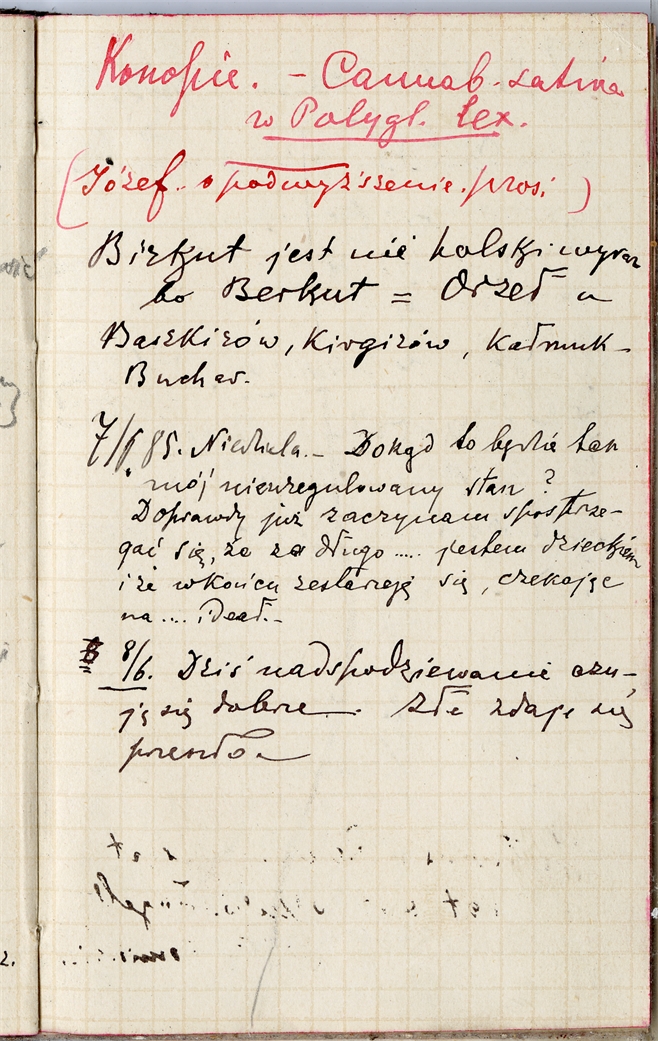 Konopie. – Cannab. sativa
w Polygl. Lex.
(Józef o podwyższenie prosi)
Birkut jest nie polski wyraz
bo Berkut = Orzeł u
Baszkirów, Kirgizów, Kałmuk–
Buchar.
7/6 85. Niedziela. – Dokąd to będzie ten
mój nieuregulowany stan?
Doprawdy już zaczynam spostrze–
gać się, że za długo ..... jestem dzieckiem
i że wkońcu zestarzeję się, czekając
na .... ideał. –
8/6. Dziś nadspodziewanie czu–
ję się dobrze. Złe zdaje się
przeszło